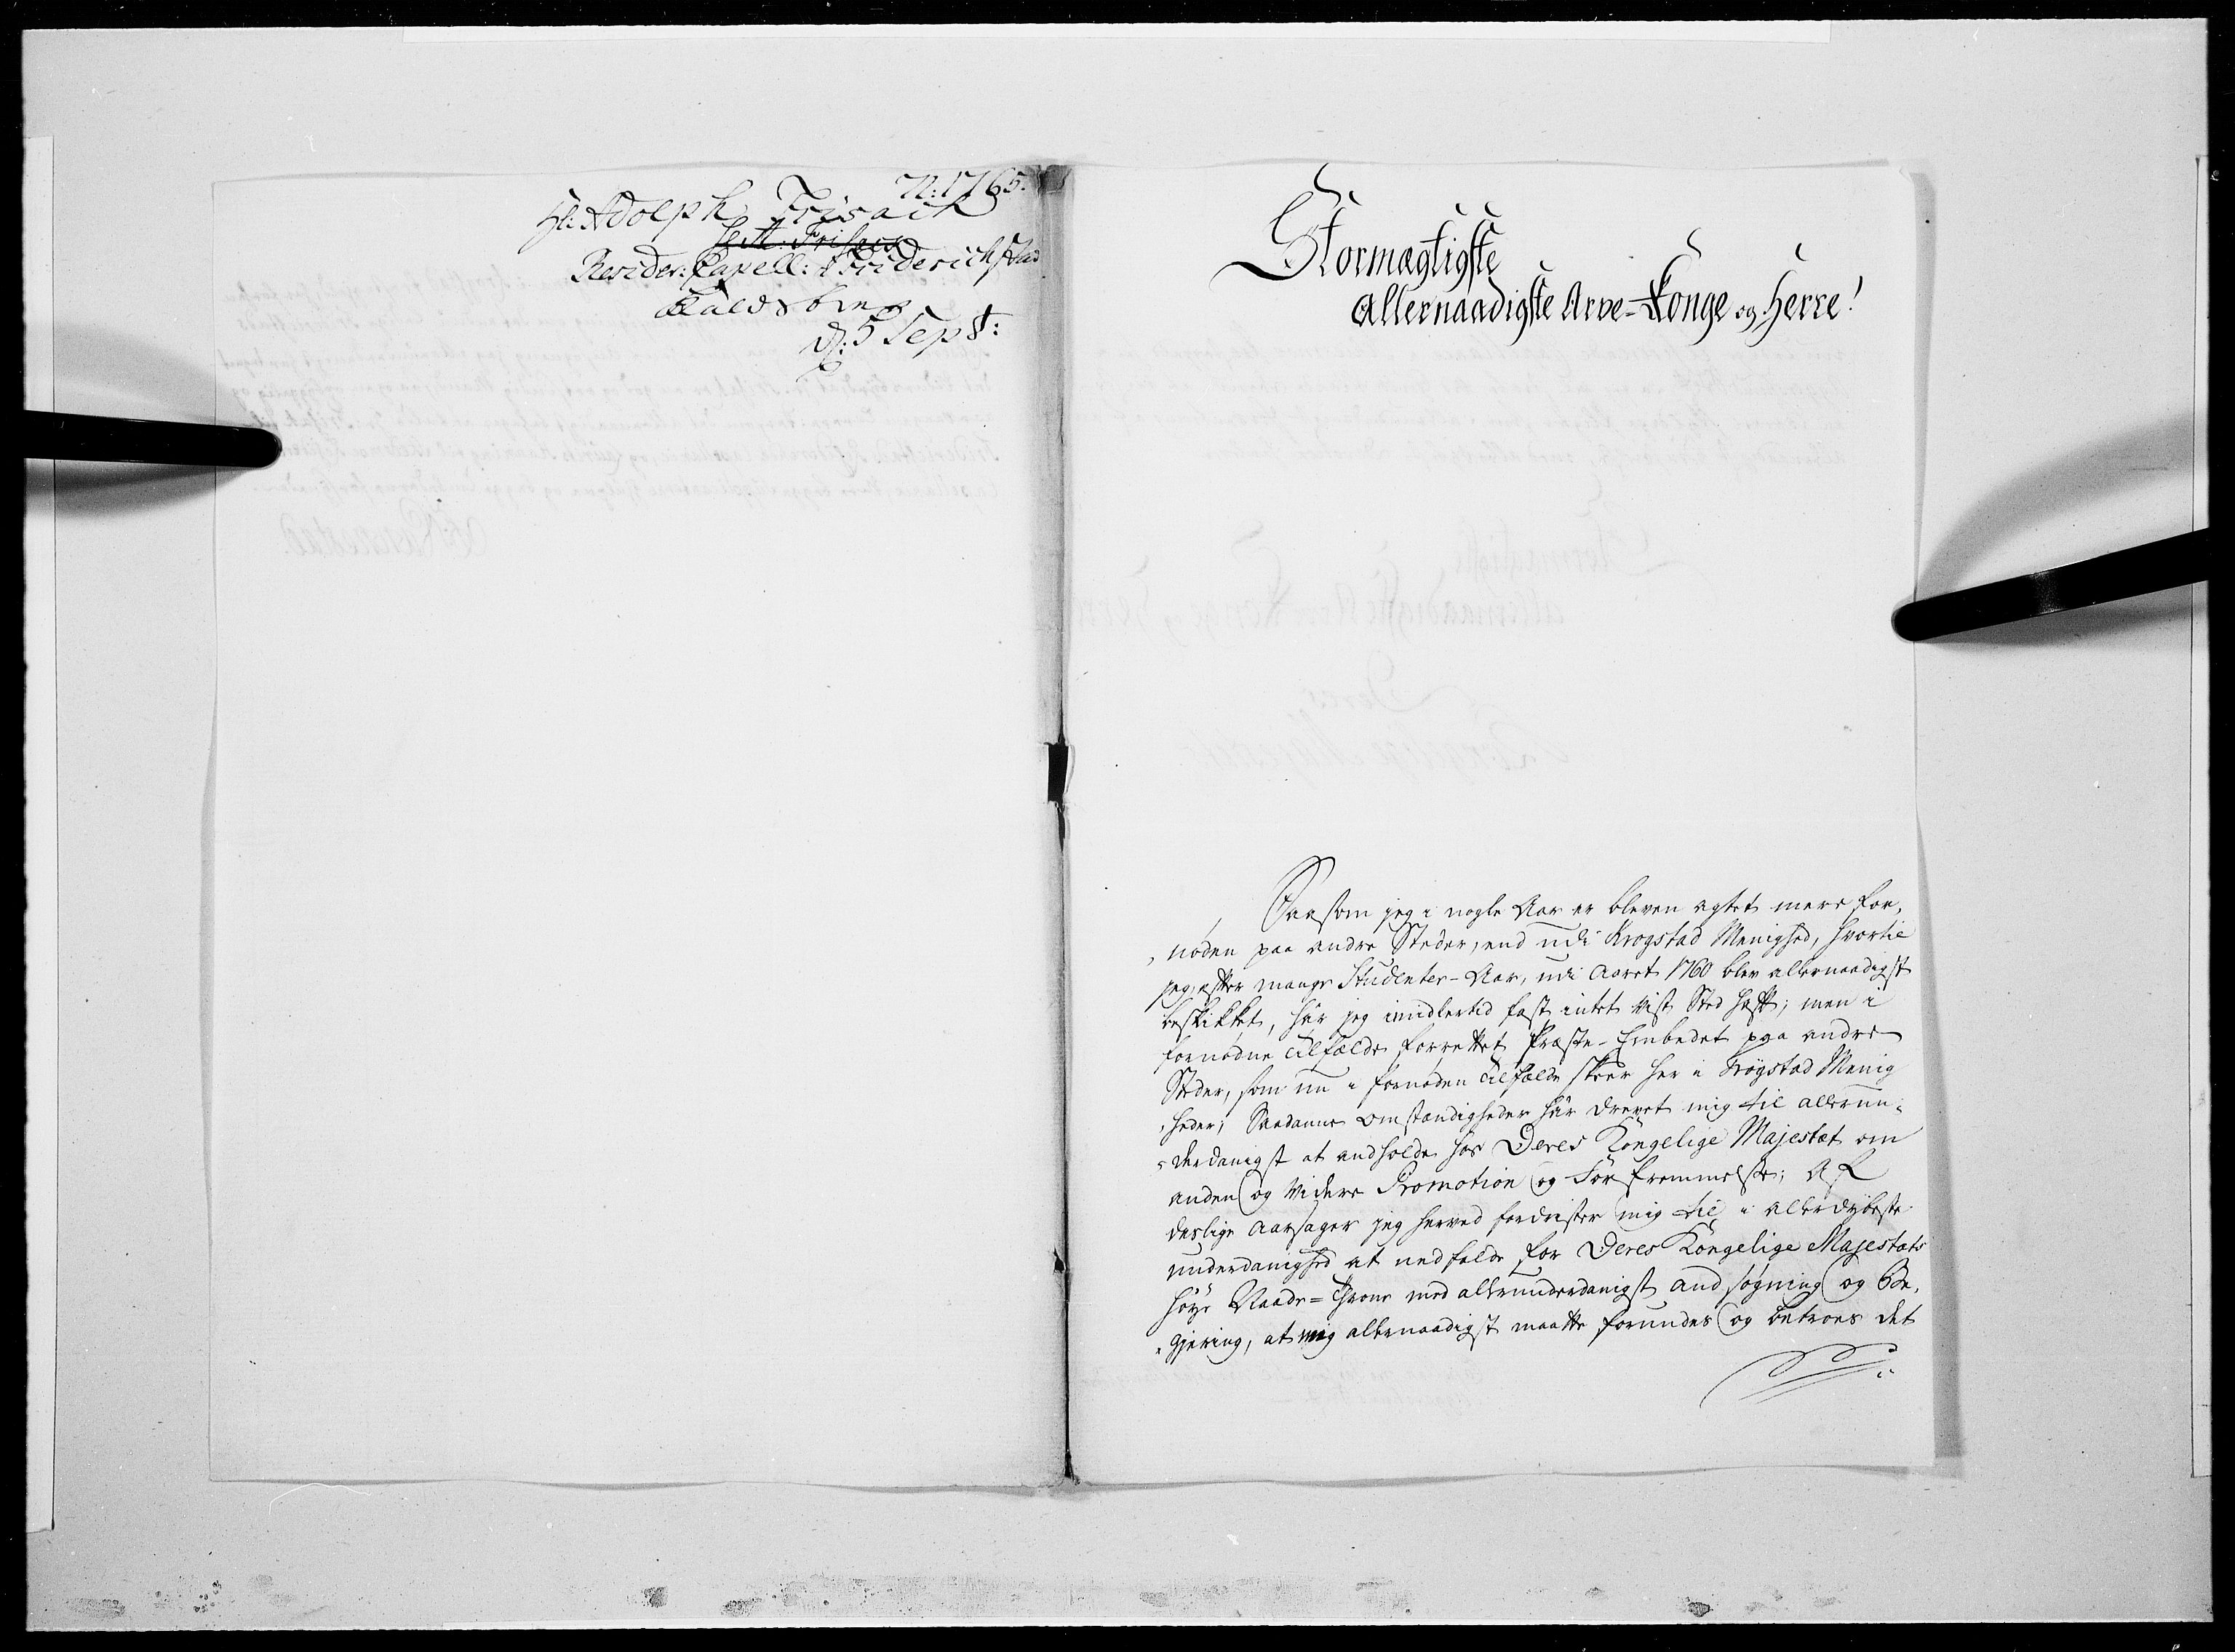 N: 1765.
Hr: Adolph Frisack
Resider: Capell: t Friderichstad
Kaldsbrev
d: 5 Sept:
Stormægtigste
Allernaadigste Arve-Konge og Herre!
Saasom jeg i nogle Aar er bleven agtet mere for,
nøden paa andre Steder, end udi Krogstad Menighed, hvortil
jeg, efter mange Studenter-Aar, udi Aaret 1760 blev allernaadigst
beskikket, har jeg imidlertid fast intet vist Sted haft; men i
fornødne tilfælde forrettet Præste-Embedet paa andre
Steder, som nu i fornøden tilfælde skeer her i Trøgstad Menig
heder; Saadanne omstændigheder har drevet mig til allerun-
derdanigst at andholde hos Deres Kongelige Majestæt om
anden og videre Promotion og Forfremmelse; Af
deslige Aarsager jeg herved fordrister mig til i allerdybeste
underdanighed at nedfalde for Deres Kongelige Majestæts
høye Naade-Throne med allerunderdanigst andsøgning og Be,
gjering, at mig allernaadigst maatte forundes og betroes det